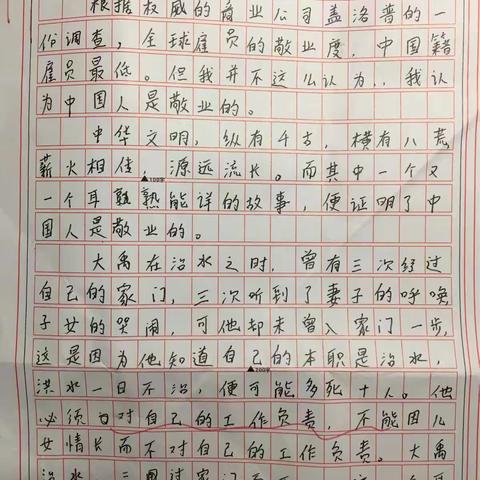 根据权威的商业公司盖洛普的一
份调查，全球雇员的敬业度，中国籍
雇员最低。但我并不这么认为，，我认
为中国人是敬业的。
中华文明，纵有千古，横有八荒
薪火相传，源远流长。而其中一个又
▲100字
一个耳熟能详的故事，便证明了中
国人是敬业的。
大禹在治水之时，曾有三次经过
自己的家门，三次听到了妻子的呼唤
子女的哭闹，可他却未曾入家门一步，
这是因为他知道自己的本职是治水，
▲200字
洪水一日不治，便可能多死十人。他
必须对自己的工作负责，不能因儿
女情长而不对自己的工作负责。大禹
治水，三过家门而不